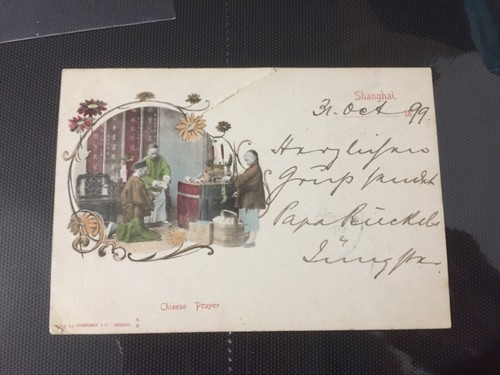 Shanghai,
31. Oct 1899.
Herzlichen
Gruß sendet
Papa Rückels
Jüngster.
Chinese Prayer